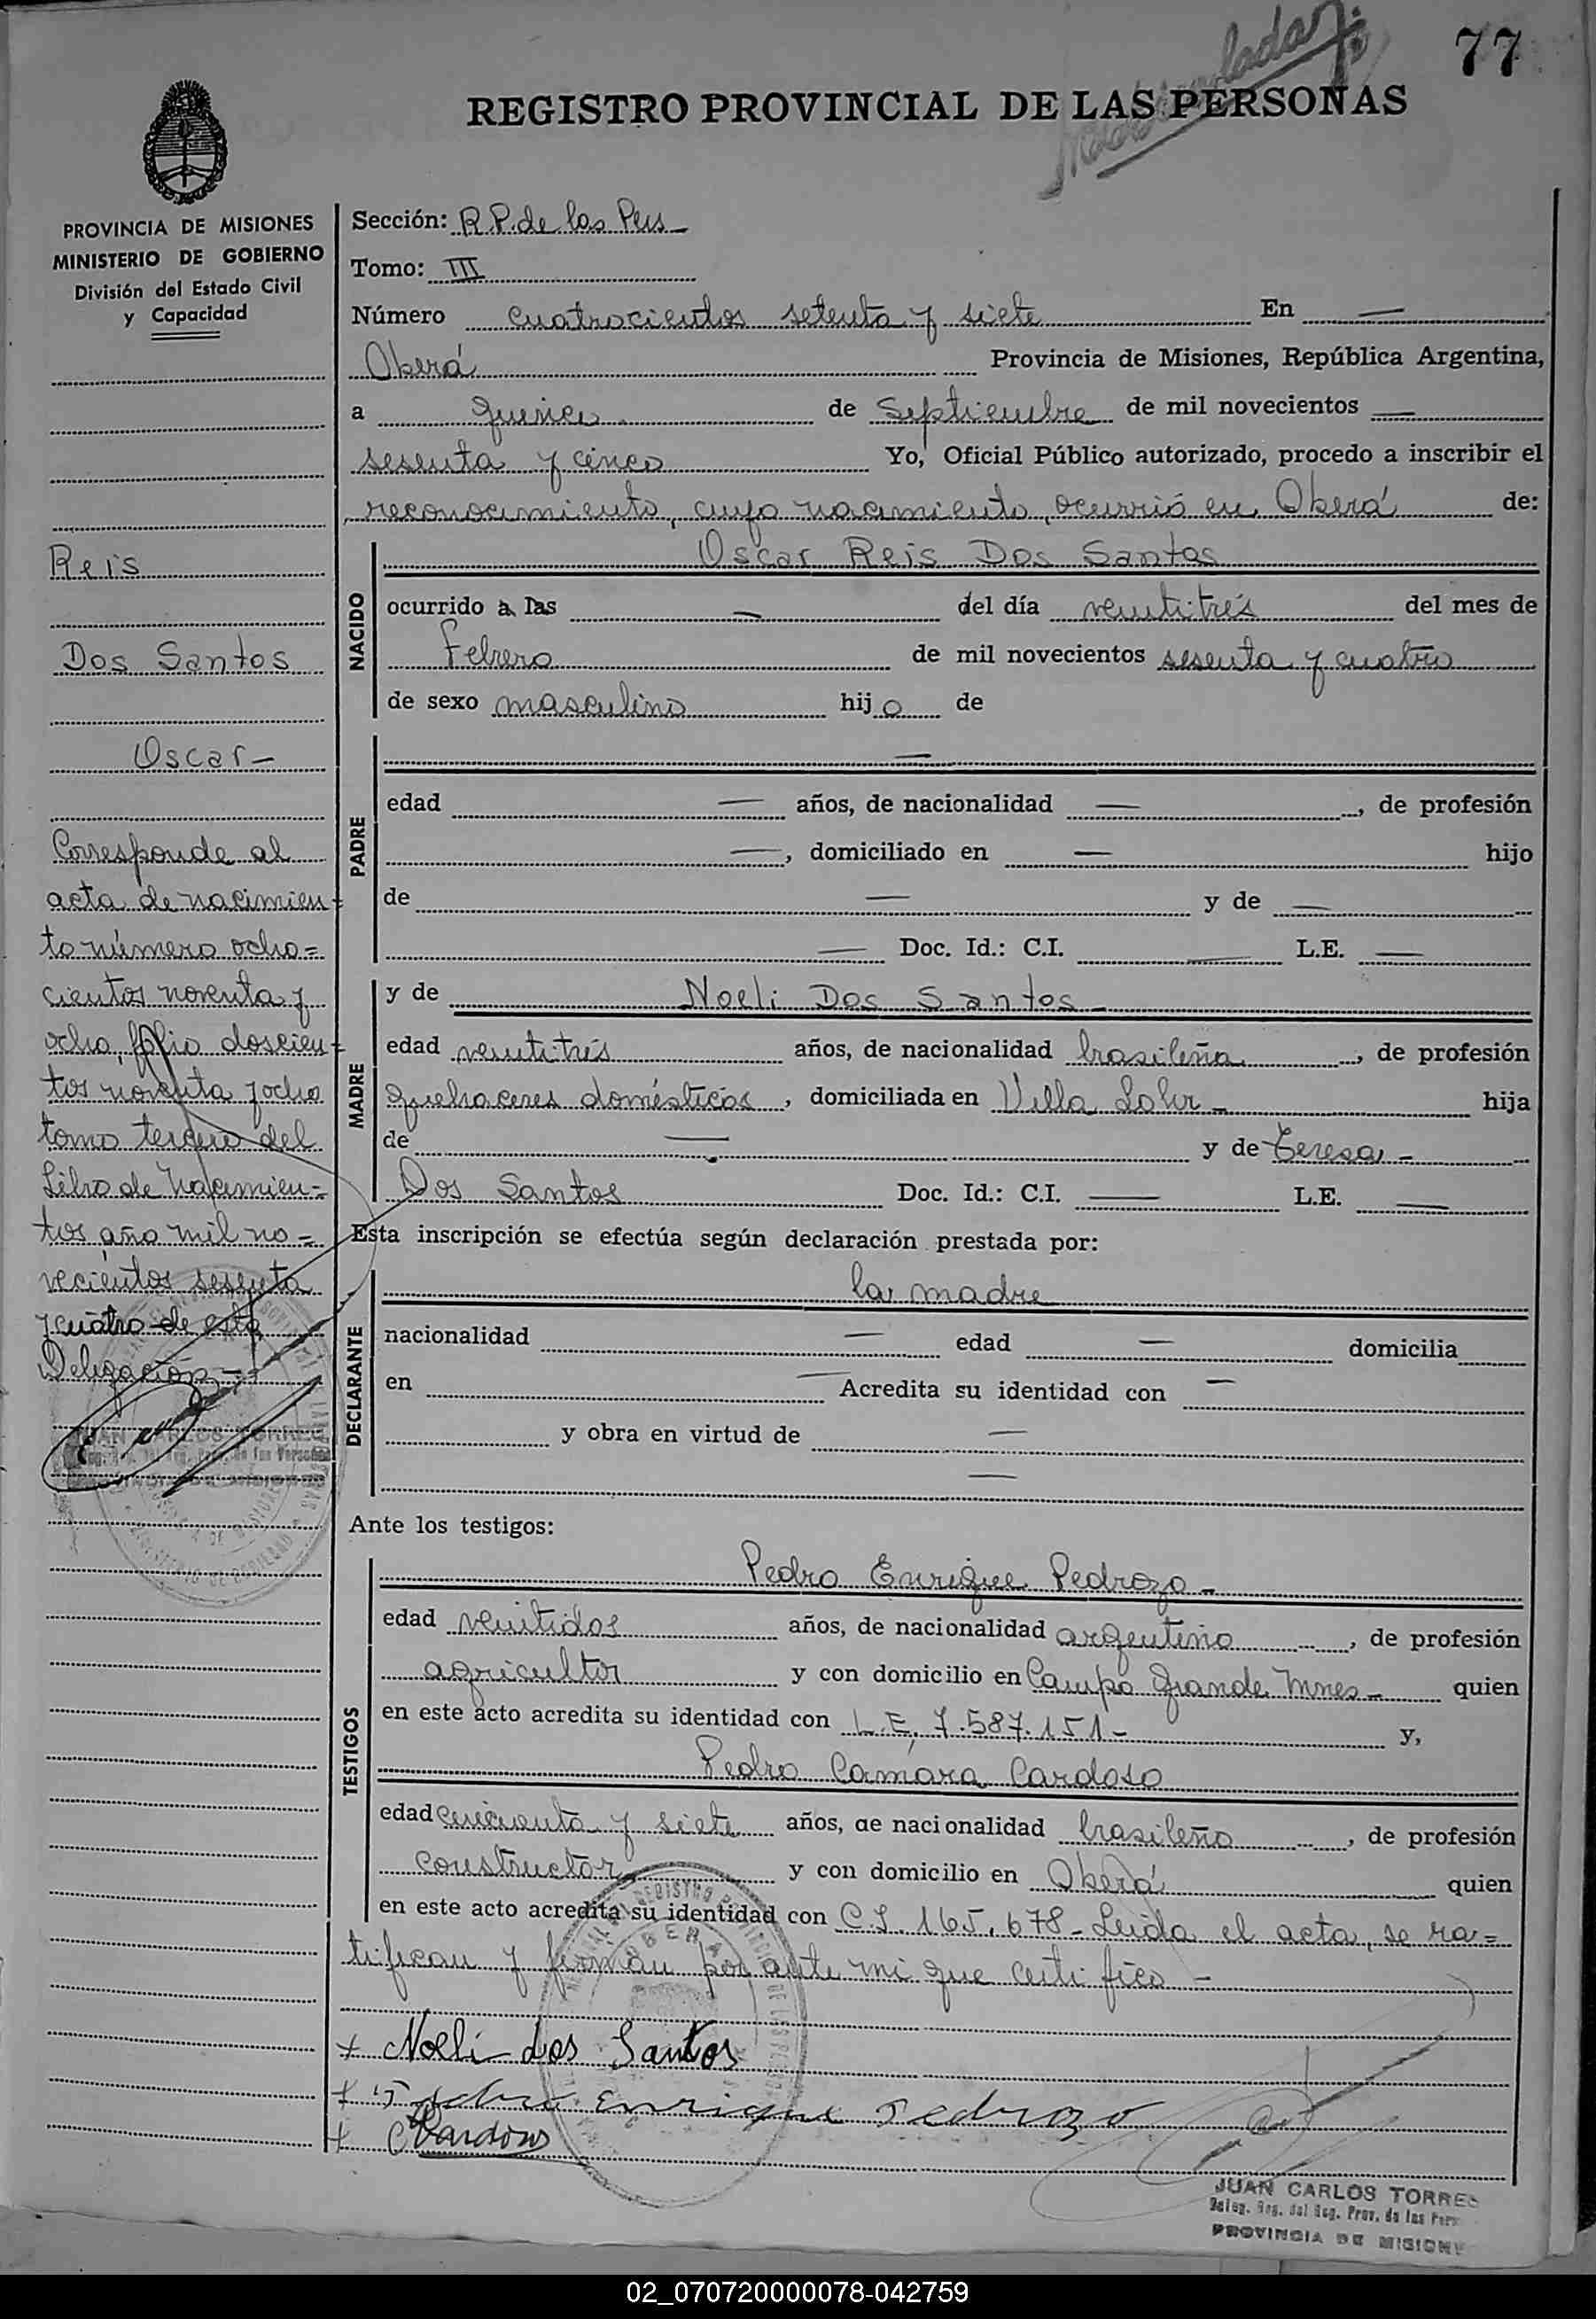 77
REGISTRO PROVINCIAL DE LAS PERSONAS
PROVINCIA DE MISIONES
MINISTERIO DE GOBIERNO
División del Estado Civil
y Capacidad
Reis
Dos Santos
Oscar-
Corresponde al
acta de nacimien=
to número ocho=
cientos noventa y
ocho, folio doscien=
tos noventa y ocho
tomo tercero del
Libro de Nacimien=
tos año mil no=
vecientos sesenta
y cuatro de esta
Delegación-
JUAN CARLOS TORRES
Sección: R.P. de las Pers-
Tomo: III
Número cuatrocientos setenta y siete En —
Oberá Provincia de Misiones, República Argentina,
a quince de Septiembre de mil novecientos —
sesenta y cinco Yo, Oficial Público autorizado, procedo a inscribir el
reconocimiento, cuyo nacimiento, ocurrió en Oberá de:
NACIDO
Oscar Reis Dos Santos
ocurrido a las — del día veintitrés del mes de
Febrero de mil novecientos sesenta y cuatro
de sexo masculino hijo de
PADRE
—
edad — años, de nacionalidad —, de profesión
—, domiciliado en — hijo
de — y de —
— Doc. Id.: C.I. — L.E. —
MADRE
y de Noeli Dos Santos-
edad veintitrés años, de nacionalidad brasileña, de profesión
quehaceres domésticos, domiciliada en Villa Lohr- hija
de — y de Teresa-
Dos Santos Doc. Id.: C.I. — L.E. —
Esta inscripción se efectúa según declaración prestada por:
DECLARANTE
la madre
nacionalidad — edad — domicilia
en — Acredita su identidad con —
y obra en virtud de —
—
Ante los testigos:
TESTIGOS
Pedro Enrique Pedrozo-
edad veintidos años, de nacionalidad argentino, de profesión
agricultor y con domicilio en Campo Grande Mnes- quien
en este acto acredita su identidad con L.E. 7.587.151- y,
Pedro Camara Cardoso
edad cincuenta y siete años, de nacionalidad brasileño, de profesión
constructor y con domicilio en Oberá quien
en este acto acredita su identidad con C.I. 165.678- Leída el acta, se ra=
tifican y firman por ante mi que certifico-
+ Noeli dos Santos
+ Pedro Enrique Pedrozo
+ Cardoso
JUAN CARLOS TORRES
Deleg. Reg. del Reg. Prov. de las Pers
PROVINCIA DE MISIONES
02_070720000078-042759